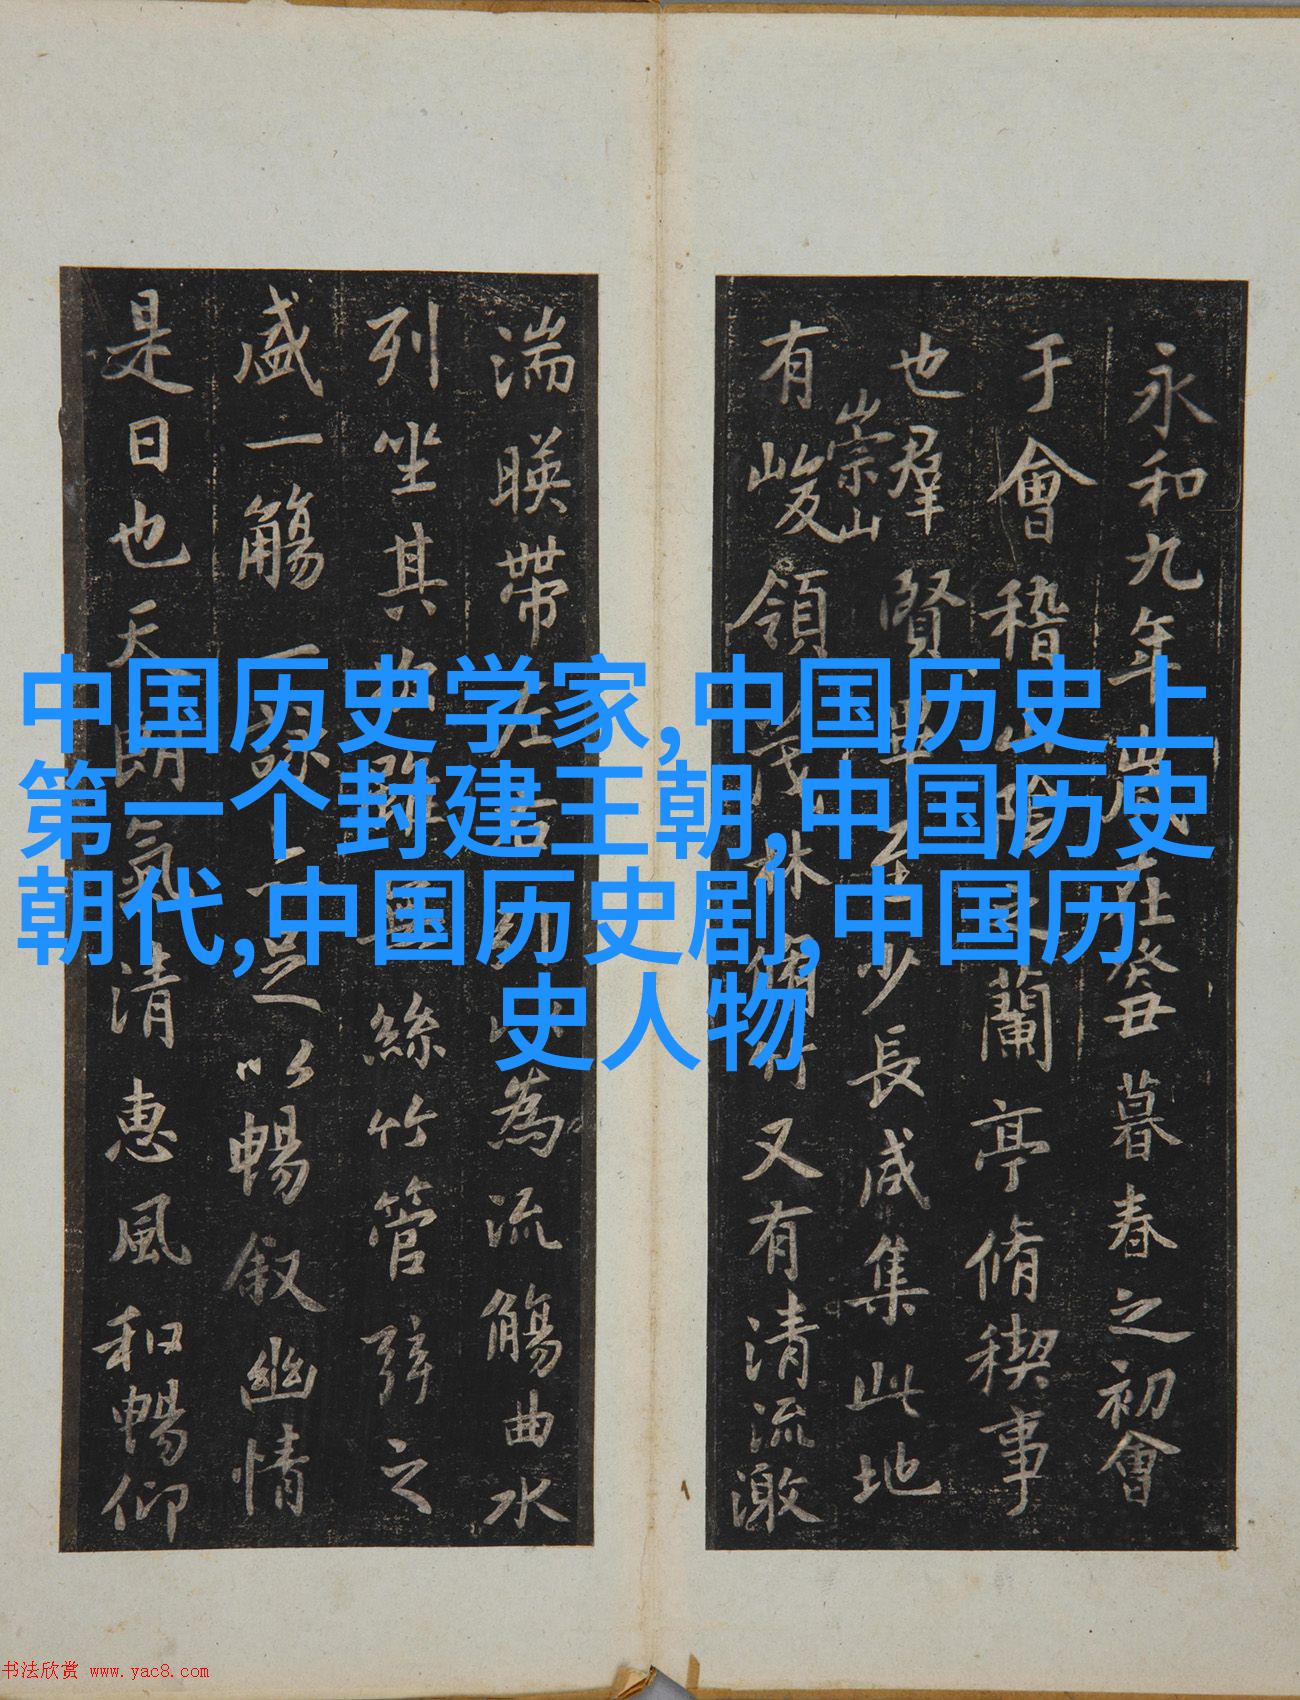 永和九年歲在癸丑暮春之初會
于會稽山陰之蘭亭脩禊事
也羣賢畢至少長咸集此地
崇山
有峻領茂林脩竹又有清流激
湍暎帶左右引以為流觴曲水
列坐其次雖無絲竹管弦之
盛一觴一詠亦足以暢叙幽情
是日也天朗氣清惠風和暢仰
中国历史学家,中国历史上
第一个封建王朝,中国历史
朝代,中国历史剧,中国历
史人物
书法欣赏 www.yac8.com